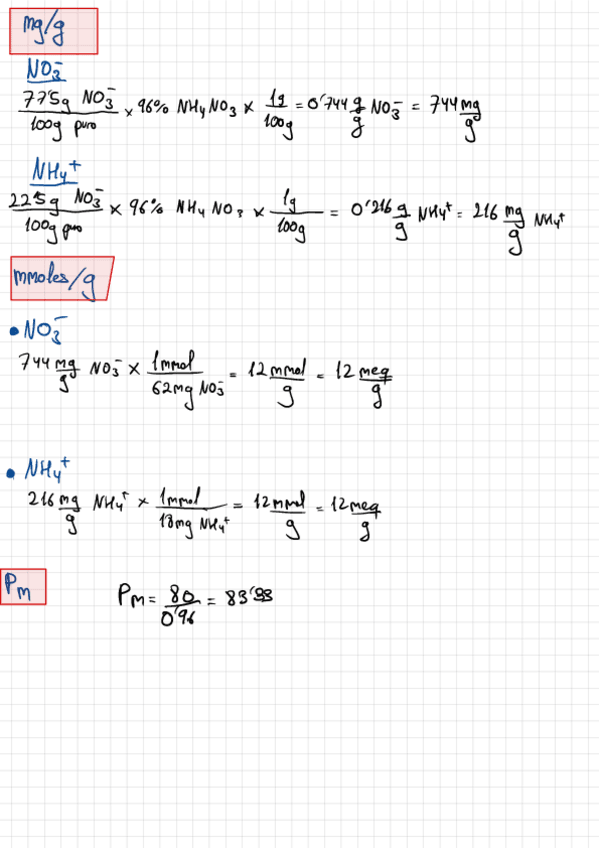 mg/g
NO₃⁻
77'5g NO₃⁻ / 100g puro × 96% NH₄NO₃ × 1g / 100g = 0'744 g/g NO₃⁻ = 744 mg/g
NH₄⁺
22'5g NO₃⁻ / 100g puro × 96% NH₄NO₃ × 1g / 100g = 0'216 g/g NH₄⁺ = 216 mg/g NH₄⁺
mmoles/g
• NO₃⁻
744 mg/g NO₃⁻ × 1mmol / 62mg NO₃⁻ = 12 mmol/g = 12 meq/g
• NH₄⁺
216 mg/g NH₄⁺ × 1mmol / 18mg NH₄⁺ = 12 mmol/g = 12 meq/g
Pm
PM = 80 / 0'96 = 83'33